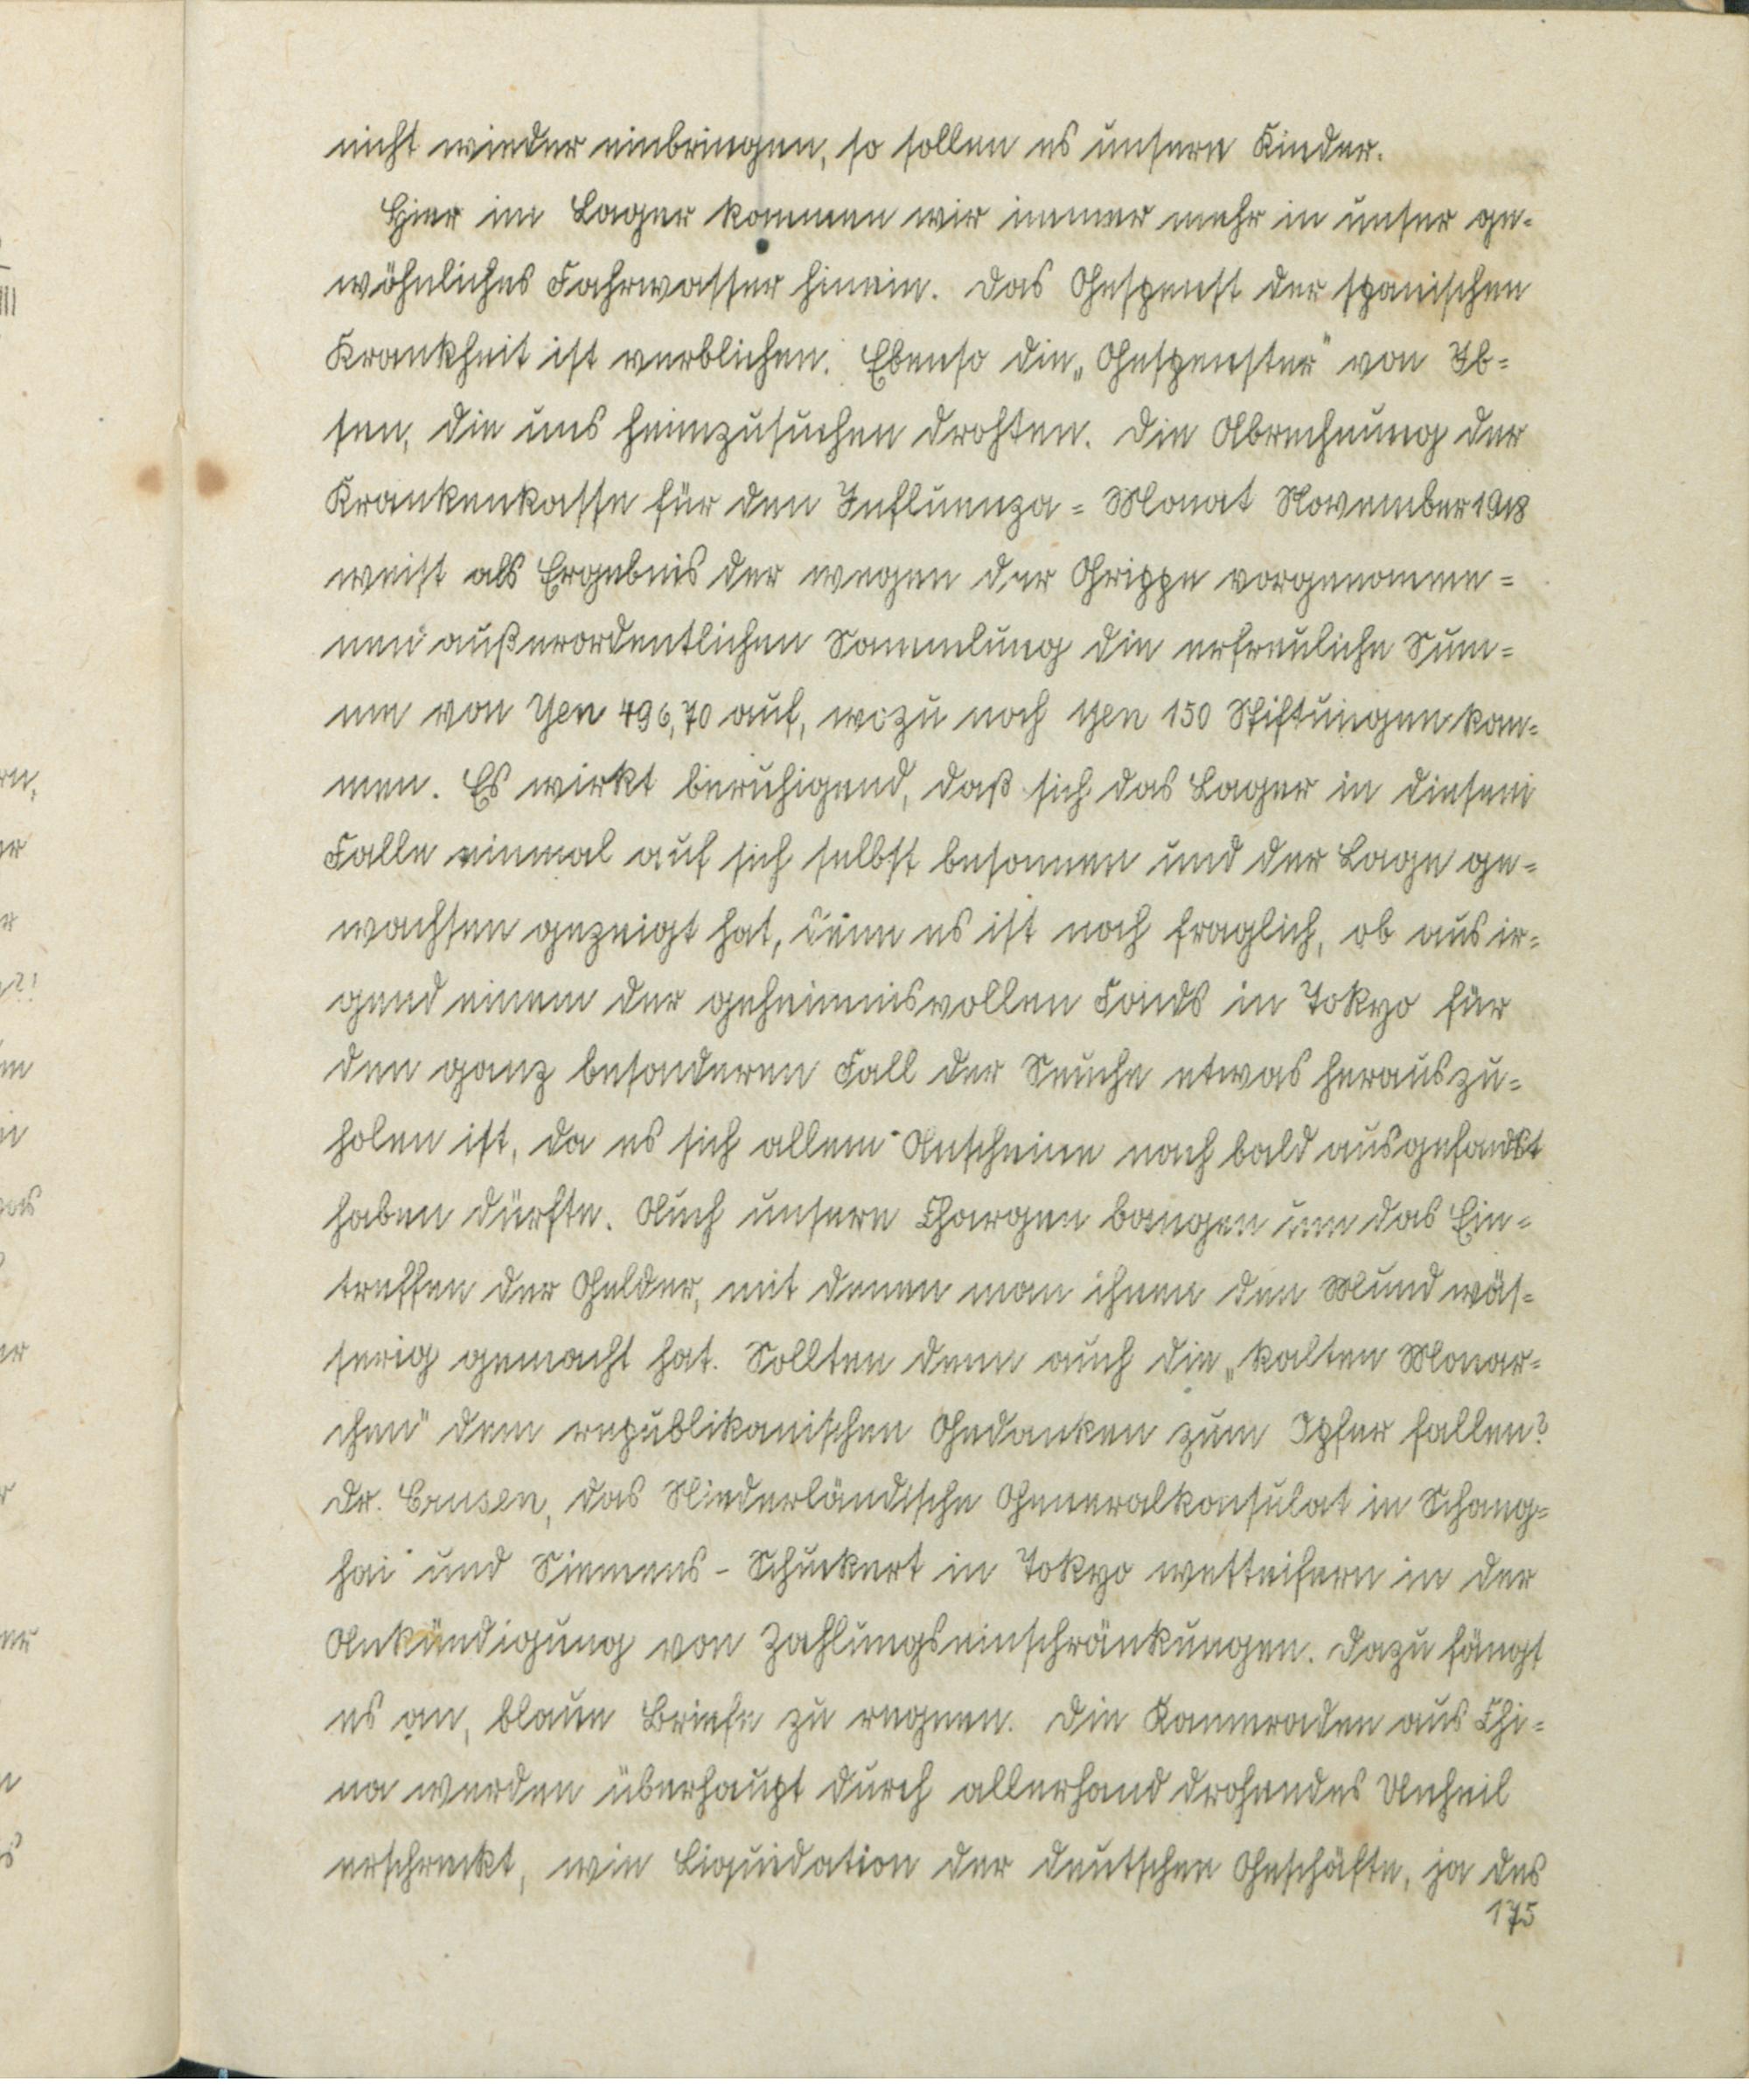 nicht wieder einbringen, so sollen es unsere Kinder.
Hier im Lager kommen wir immer mehr in unser ge-
wöhnliches Fahrwasser hinein. Das Gespenst der spanischen
Krankheit ist verblichen. Ebenso die „Gespenster" von Ib-
sen, die uns heimzusuchen drohten. Die Abrechnung der
Krankenkasse für den Influenza-Monat November 1918
weist als Ergebnis der wegen der Grippe vorgenomme-
nen außerordentlichen Sammlung die erfreuliche Sum-
me von Yen 496,70 auf, wozu noch Yen 150 Stiftungen kom-
men. Es wirkt beruhigend, daß sich das Lager in diesem
Falle einmal auf sich selbst besonnen und der Lage ge-
wachsen gezeigt hat, denn es ist noch fraglich, ob aus ir-
gend einem der geheimnisvollen Fonds in Tokyo für
den ganz besonderen Fall der Seuche etwas herauszu-
holen ist, da es sich allem Anscheine nach bald ausgefondst
haben dürfte. Auch unsere Chargen bangen um das Ein-
treffen der Gelder, mit denen man ihnen den Mund wäs-
serig gemacht hat. Sollten denn auch die „kalten Monar-
chen" dem republikanischen Gedanken zum Opfer fallen?
Dr. Crusen, das Niederländische Generalkonsulat in Schang-
hai und Siemens-Schuckert in Tokyo wetteifern in der
Ankündigung von Zahlungseinschränkungen. Dazu fängt
es an, blaue Briefe zu regnen. Die Kameraden aus Chi-
na werden überhaupt durch allerhand drohendes Unheil
erschreckt, wie Liquidation der deutschen Geschäfte, ja des
175